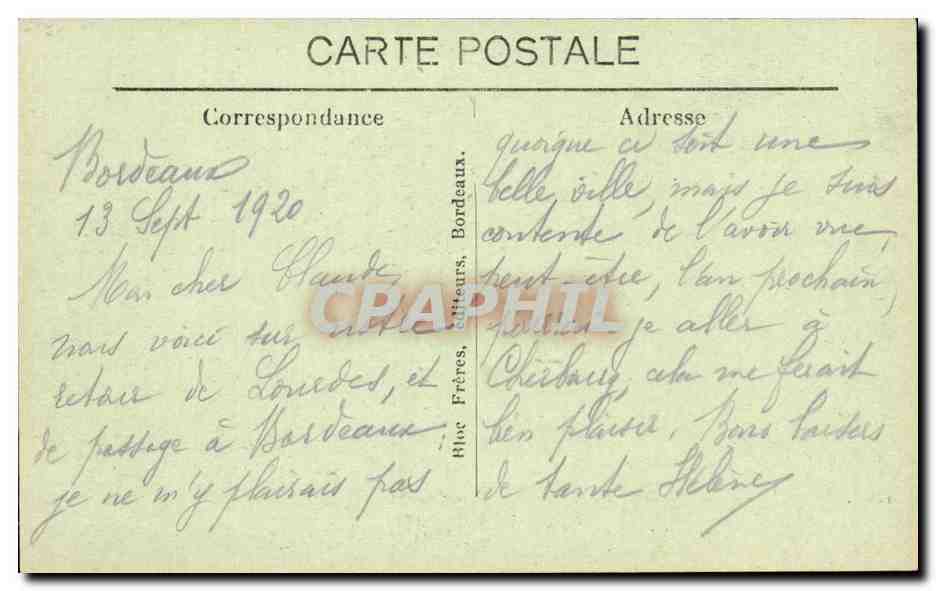 CARTE POSTALE
Correspondance
Bordeaux
13 Sept 1920
Mon cher Claude,
nous voici sur notre
retour de Lourdes, et
de passage à Bordeaux ;
je ne m'y plairais pas
Bloc Frères, éditeurs, Bordeaux.
Adresse
quoique ce soit une
belle ville, mais je suis
contente de l'avoir vue,
peut-être, l'an prochain,
je aller à
Cherbourg, cela me ferait
bien plaisir. Bons baisers
de tante Hélène
CPAPHIL